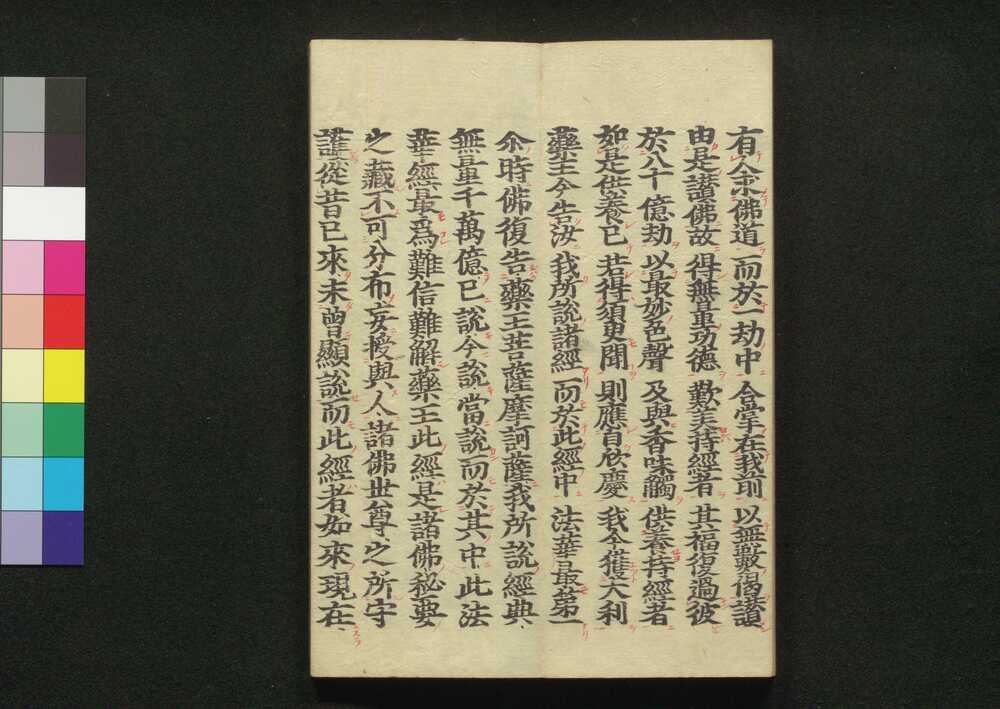 有人求佛道 而於一劫中 合掌在我前 以無數偈讃
由是讃佛故 得無量功德 歎美持經者 其福復過彼
於八十億劫 以最妙色聲 及與香味觸 供養持經者
如是供養已 若得須臾聞 則應自欣慶 我今獲大利
藥王今告汝 我所說諸經 而於此經中 法華最第一
尒時佛復告藥王菩薩摩訶薩我所說經典
無量千萬億已說今說當說而於其中此法
華經最爲難信難解藥王此經是諸佛秘要
之藏不可分布妄授與人諸佛世尊之所守
護從昔已來未曾顯說而此經者如來現在